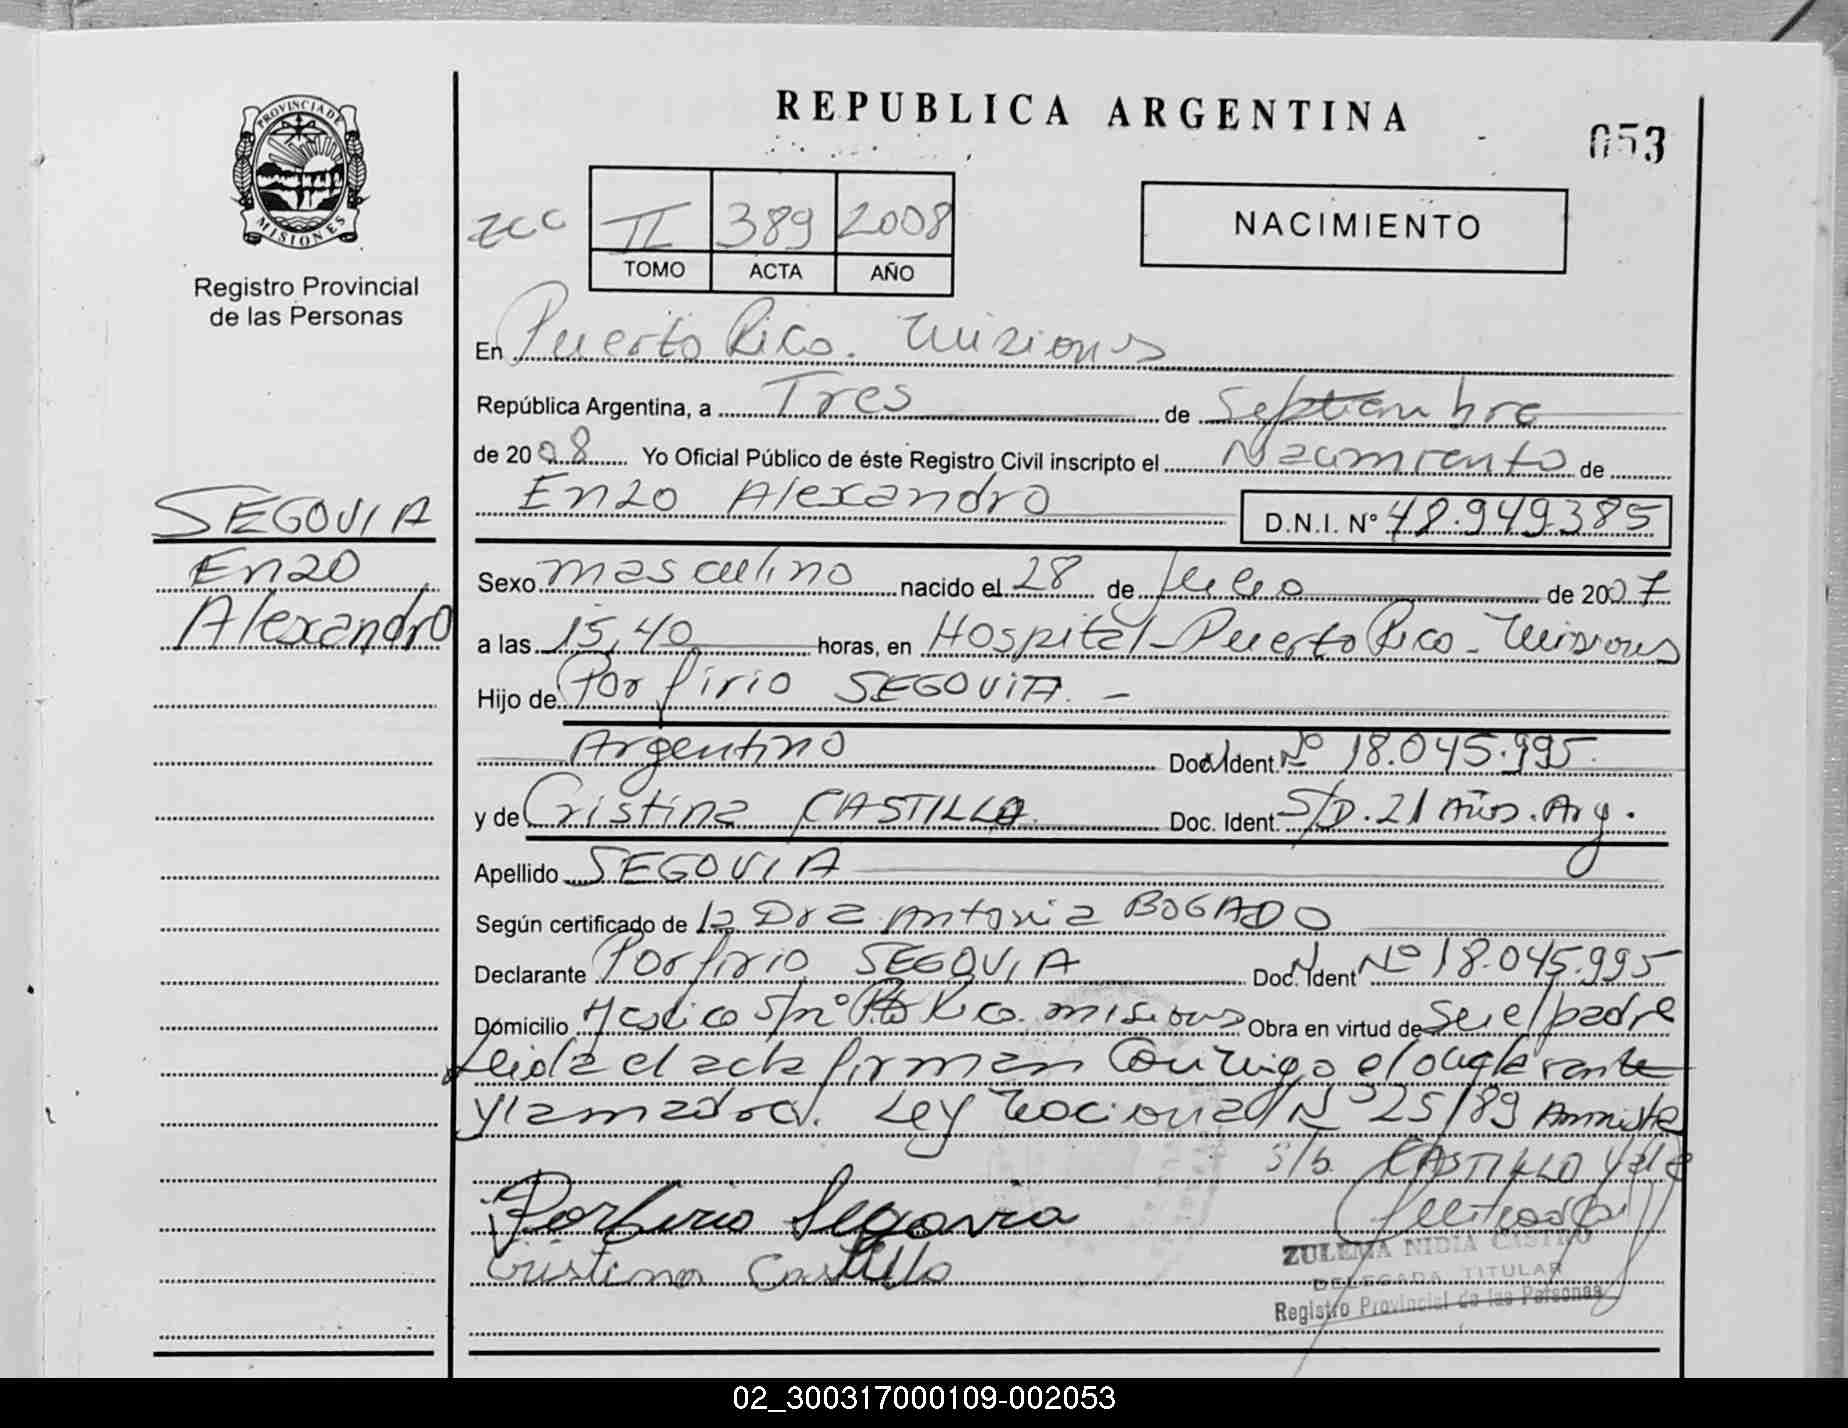 REPUBLICA ARGENTINA
053
PROVINCIA DE
MISIONES
Registro Provincial
de las Personas
II 389 2008
TOMO ACTA AÑO
NACIMIENTO
En Puerto Rico. Misiones
República Argentina, a Tres de Septiembre
de 2008 Yo Oficial Público de éste Registro Civil inscripto el Nacimiento de
Enzo Alexandro D.N.I. Nº 48.949.385
SEGOVIA
Enzo
Alexandro
Sexo masculino nacido el 28 de Julio de 2007
a las 15,40 horas, en Hospital - Puerto Rico - Misiones
Hijo de Porfirio SEGOVIA. -
Argentino Doc. Ident. Nº 18.045.995.
y de Cristina CASTILLO Doc. Ident. S/D. 21 Años. Arg.
Apellido SEGOVIA
Según certificado de la Dra Antonia BOGADO
Declarante Porfirio SEGOVIA Doc. Ident Nº 18.045.995
Domicilio S/nº Pto Rico. misiones Obra en virtud de ser el padre
Leida el acta firman conmigo el declarante
y la madre. Ley Nacional Nº 25/89
S/b. CASTILLO vale
Porfirio Segovia
Cristina Castillo
ZULEMA NIDIA CASTRO
DELEGADA TITULAR
Registro Provincial de las Personas
02_300317000109-002053